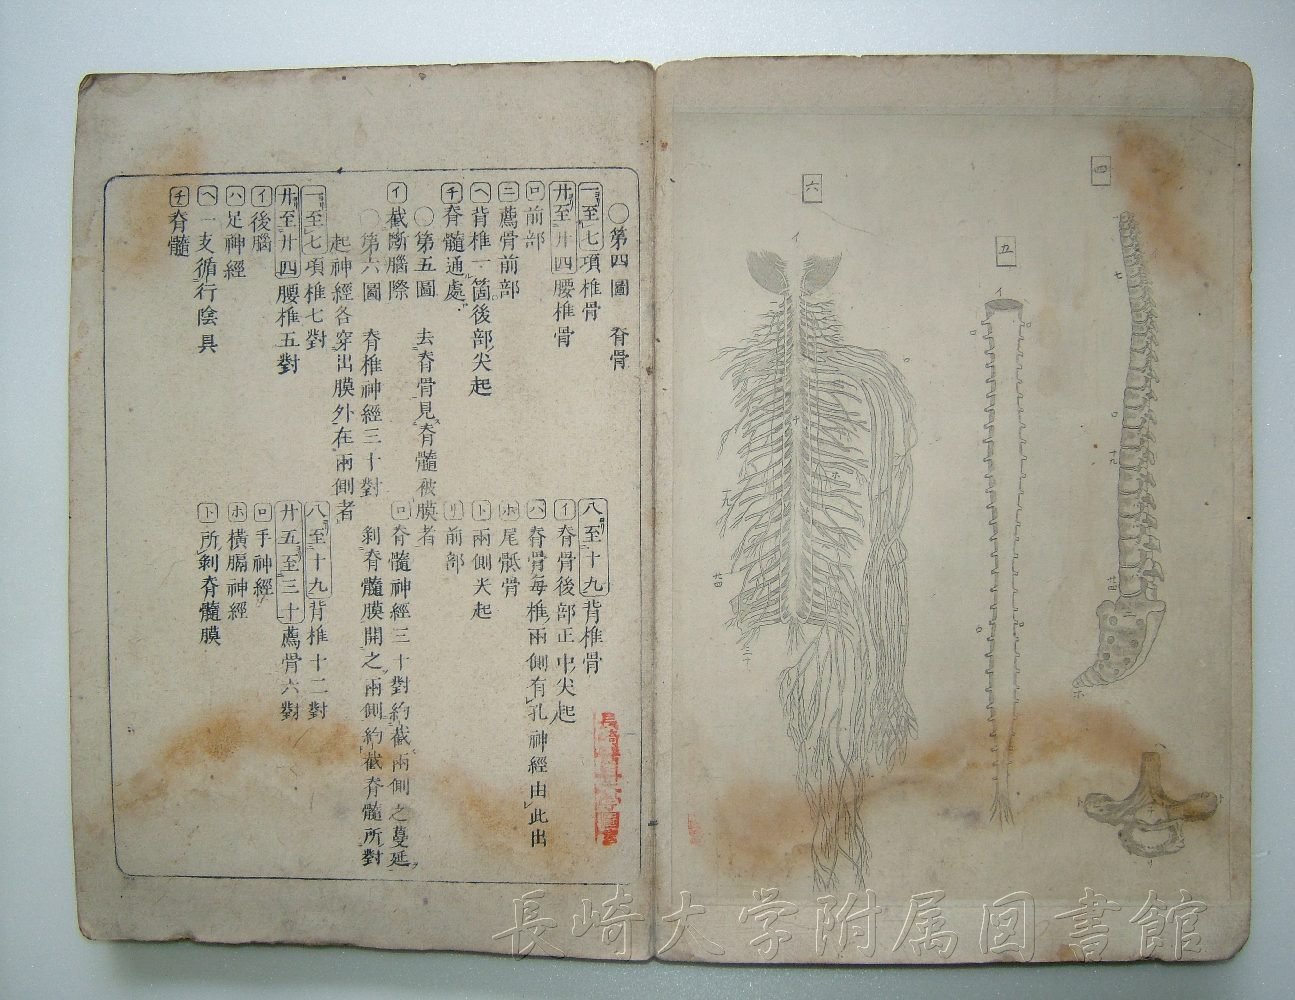 〇第四圖　脊骨
一至七項椎骨
八至十九背椎骨
廿至廿四腰椎骨
イ脊骨後部正中尖起
ロ前部
ハ脊骨每椎兩側有孔神經由此出
ニ薦骨前部
ホ尾骶骨
ヘ背椎一箇後部尖起
ト兩側尖起
チ脊髓通處
リ前部
〇第五圖　去脊骨見脊髓被膜者
イ截斷腦際
ロ脊髓神經三十對約截兩側之蔓延
〇第六圖　脊椎神經三十對　剝脊髓膜開之兩側約截脊髓所對
起神經各穿出膜外在兩側者
一至七項椎七對
八至十九背椎十二對
廿至廿四腰椎五對
廿五至三十薦骨六對
イ後腦
ロ手神經
ハ足神經
ホ橫膈神經
ヘ一支循行陰具
ト所剝脊髓膜
チ脊髓
四
七
十九
廿四
ニ
ホ
五
イ
六
イ
十九
廿四
三十
長崎大学附属図書館